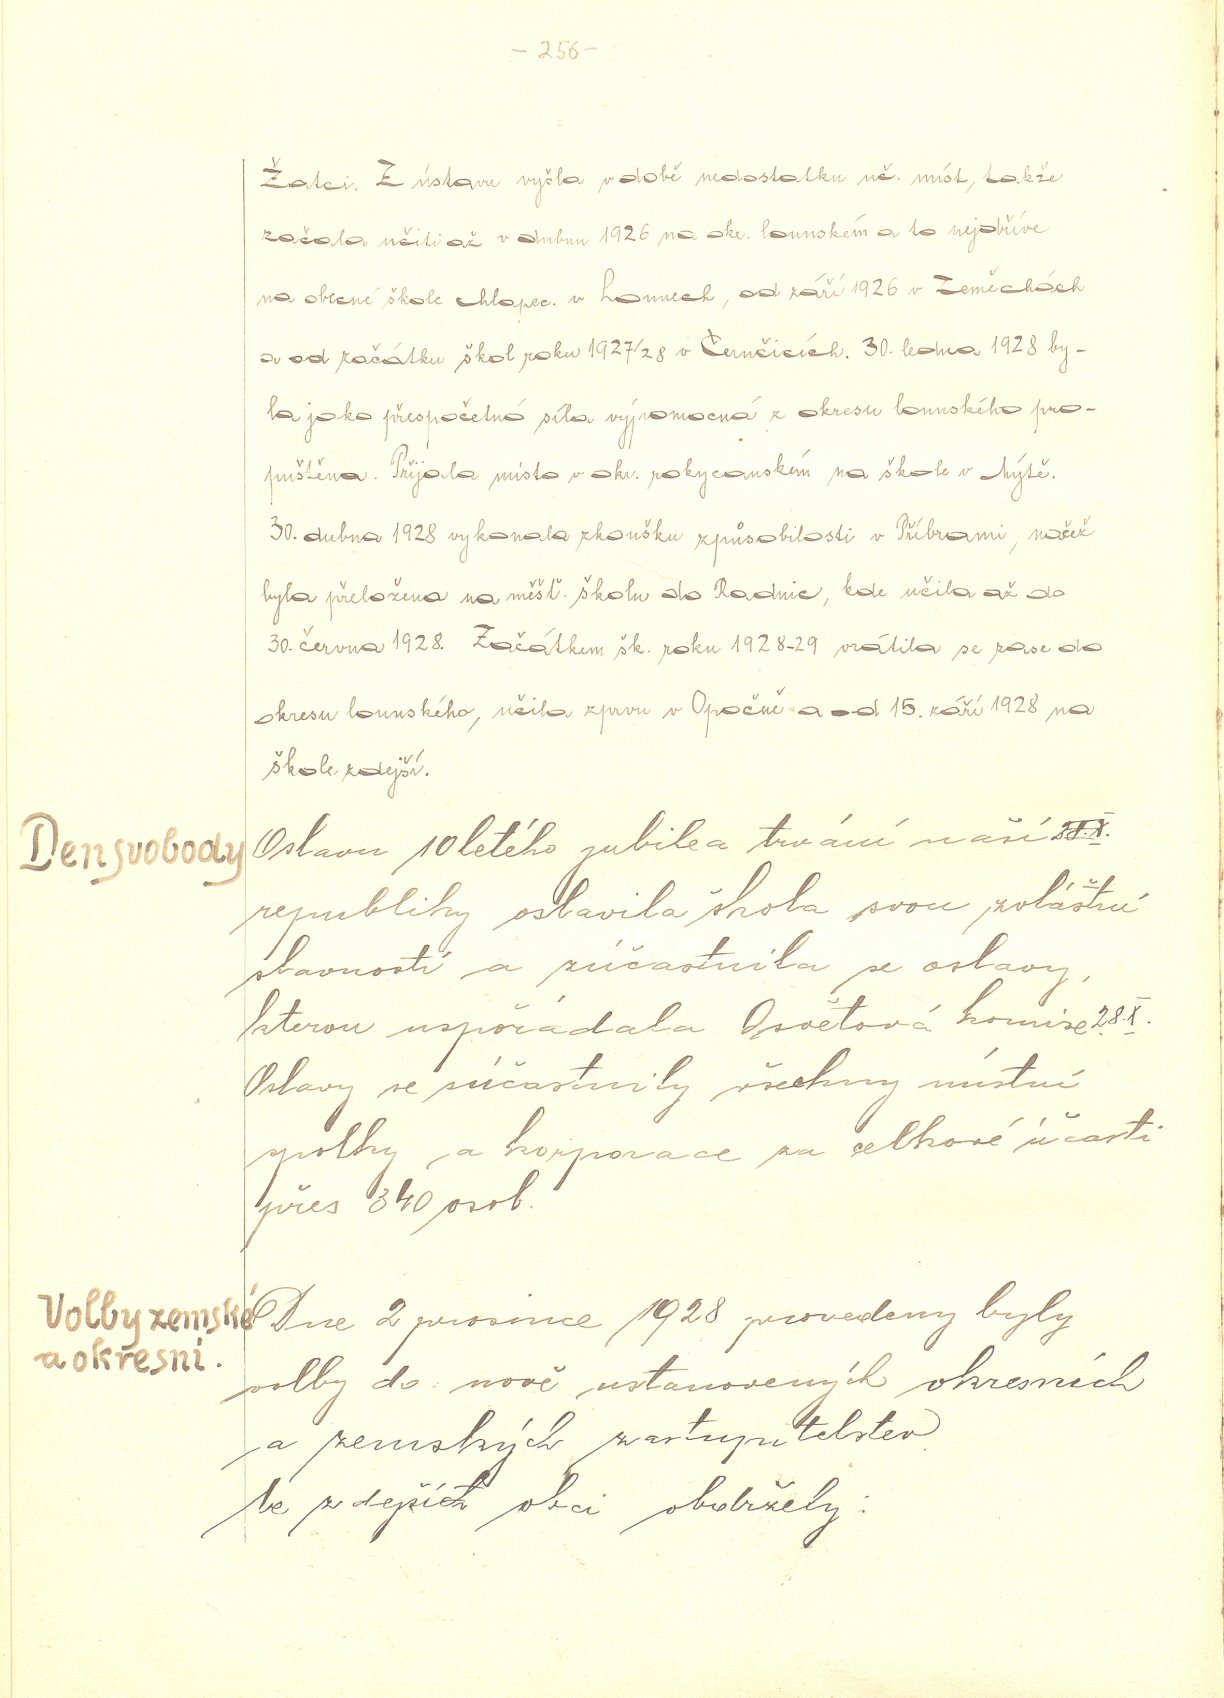 - 256 -
Žatci. Z ústavu vyšla v době nedostatku uč. míst, takže
začala učiti až v dubnu 1926 na okr. lounském a to nejdříve
na obecné škole chlapec. v Lounech, od září 1926 v Zeměchách
a od začátku škol roku 1927/28 v Černčicích. 30. ledna 1928 by-
la jako přespočetná síla výpomocná z okresu lounského pro-
puštěna. Přijala místo v okr. rokycanském na škole v Mýtě.
30. dubna 1928 vykonala zkoušku způsobilosti v Příbrami, načež
byla přeložena na měšť. školu do Radnic, kde učila až do
30. června 1928. Začátkem šk. roku 1928-29 vrátila se zase do
okresu lounského, učila zprvu v Opočně a od 15. září 1928 na
škole zdejší.
Den svobody
Oslavu 10letého jubilea trvání naší 28.X.
republiky oslavila škola svou zvláštní
slavností a zúčastnila se oslavy,
kterou uspořádala Osvětová komise 28.X.
Oslavy se súčastnily všechny místní
spolky a korporace za celkové účasti
přes 340 osob.
Volby zemské
a okresní.
Dne 2 prosince 1928 provedeny byly
volby do nově ustanovených okresních
a zemských zastupitelstev
Ve zdejších obci obdržely: